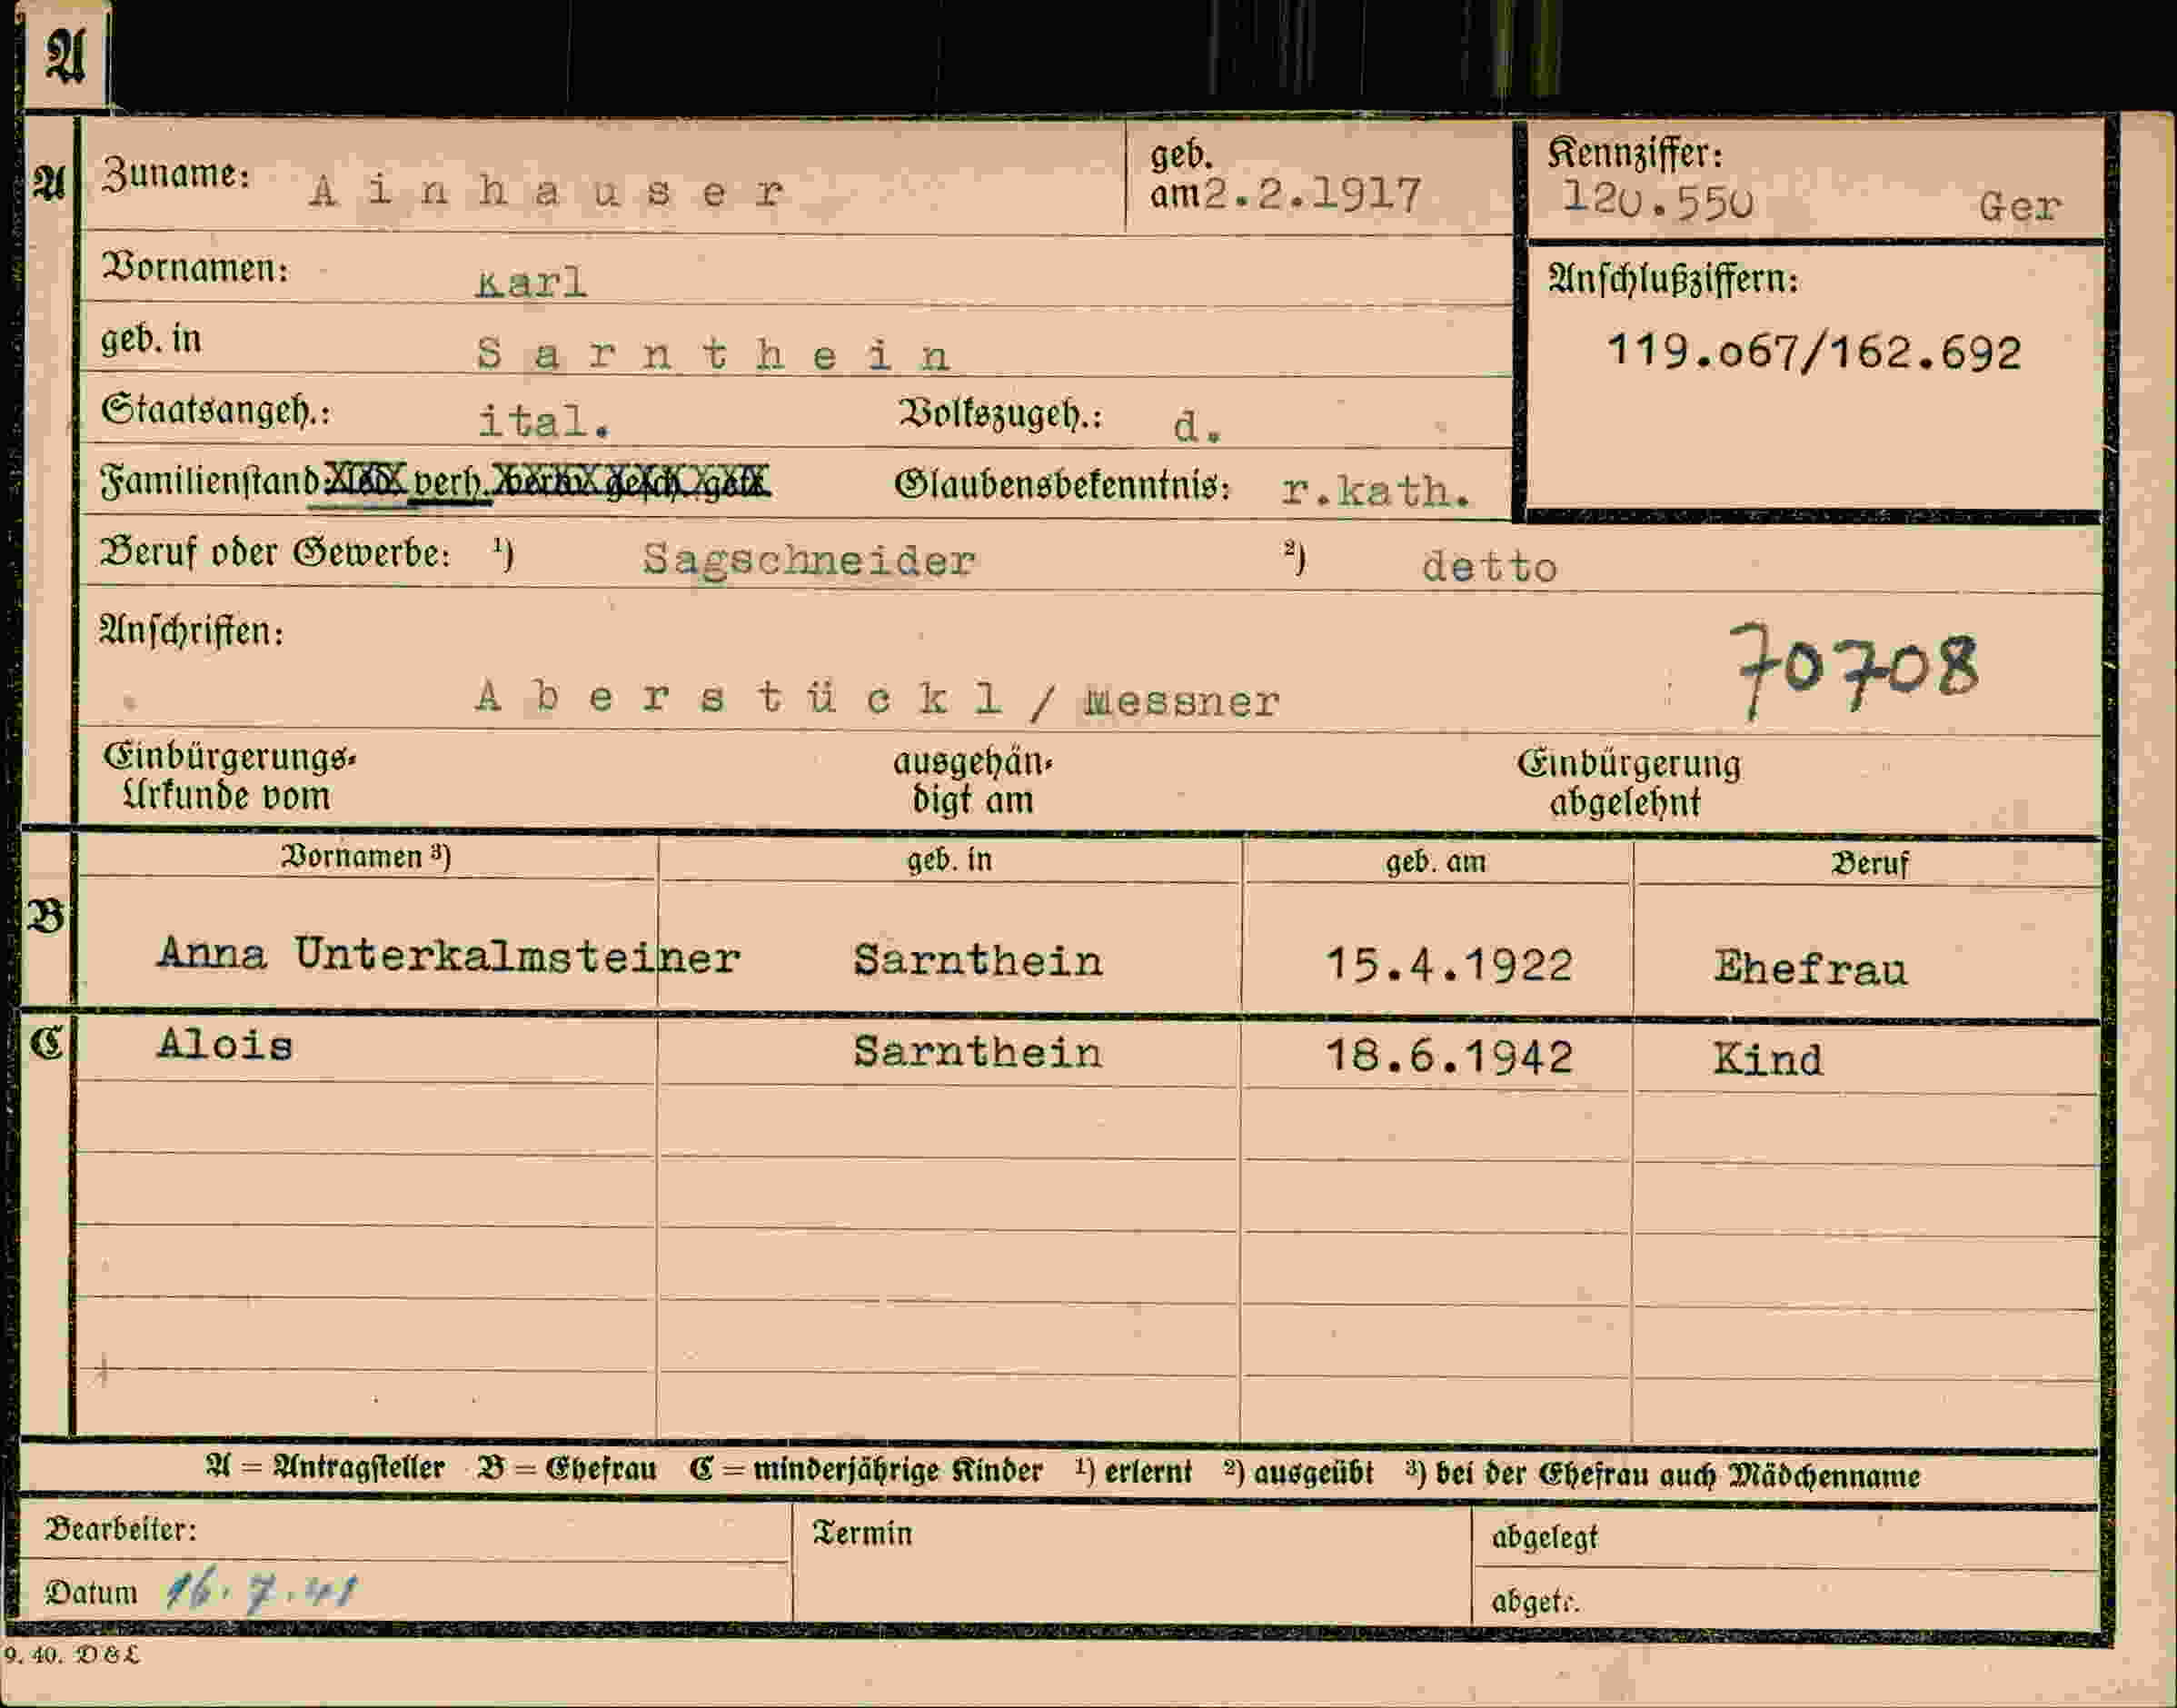 A
A Zuname: Ainhauser geb. am 2.2.1917 Kennziffer: 120.550 Ger
Vornamen: Karl
Anschlußziffern:
geb. in Sarnthein
119.o67/162.692
Staatsangeh.: ital. Volkszugeh.: d.
Familienstand: led. verh. verw. gesch. getr. Glaubensbekenntnis: r.kath.
Beruf oder Gewerbe: ¹) Sagschneider ²) detto
Anschriften:
Aberstückl/Messner 70708
Einbürgerungs-Urkunde vom ausgehändigt am Einbürgerung abgelehnt
Vornamen ³) geb. in geb. am Beruf
B Anna Unterkalmsteiner Sarnthein 15.4.1922 Ehefrau
C Alois Sarnthein 18.6.1942 Kind
A = Antragsteller B = Ehefrau C = minderjährige Kinder ¹) erlernt ²) ausgeübt ³) bei der Ehefrau auch Mädchenname
Bearbeiter: Termin abgelegt
Datum 16.7.41 abgetr.
9. 40. D&L